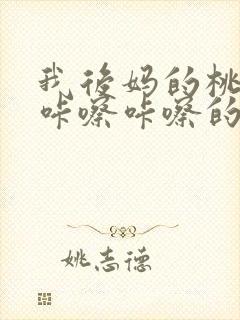 我后妈的桃
咔嚓咔嚓的
姚志德